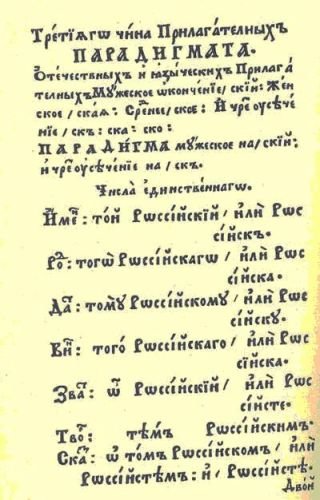 Тре́тїѧгѡ чи́на Прилага́телныхъ
ПАРАДИГМАТА.
Ѻте́чественныхъ и҆ ꙗ҆зы́ческихъ Прилага́
телныхъ Мꙋ́жеское ѡ҆конче́нїе / скїй: Же́н
ское / скаѧ: Сре́днее / ское: И҆ чрез̾ ᲂу҆сѣче́
нїе / скъ: ска: ско:
ПАРАДИ́ГМА мꙋ́жеское на / скїй:
и҆ чрез̾ ᲂу҆сѣче́нїе на / скъ.
Числа̀ є҆ди́нственнагѡ.
И҆ме: то́й Рѡссі́йскїй / и҆лѝ Рѡс
сі́йскъ.
Ро: тогѡ̀ Рѡссі́йскагѡ / и҆лѝ Рѡс
сі́йска.
Да: томꙋ̀ Рѡссі́йскомꙋ / и҆лѝ Рѡс
сі́йскꙋ.
Ви: того̀ Рѡссі́йскаго / и҆лѝ Рѡс
сі́йска.
Зва: ѽ Рѡссі́йскїй / и҆лѝ Рѡс
сі́йсте.
Тво: тѣ́мъ Рѡссі́йскимъ.
Ска: ѡ҆ то́мъ Рѡссі́йскомъ / и҆лѝ
Рѡссі́йстѣмъ: и҆ / Рѡссі́йстѣ.
Дво́й